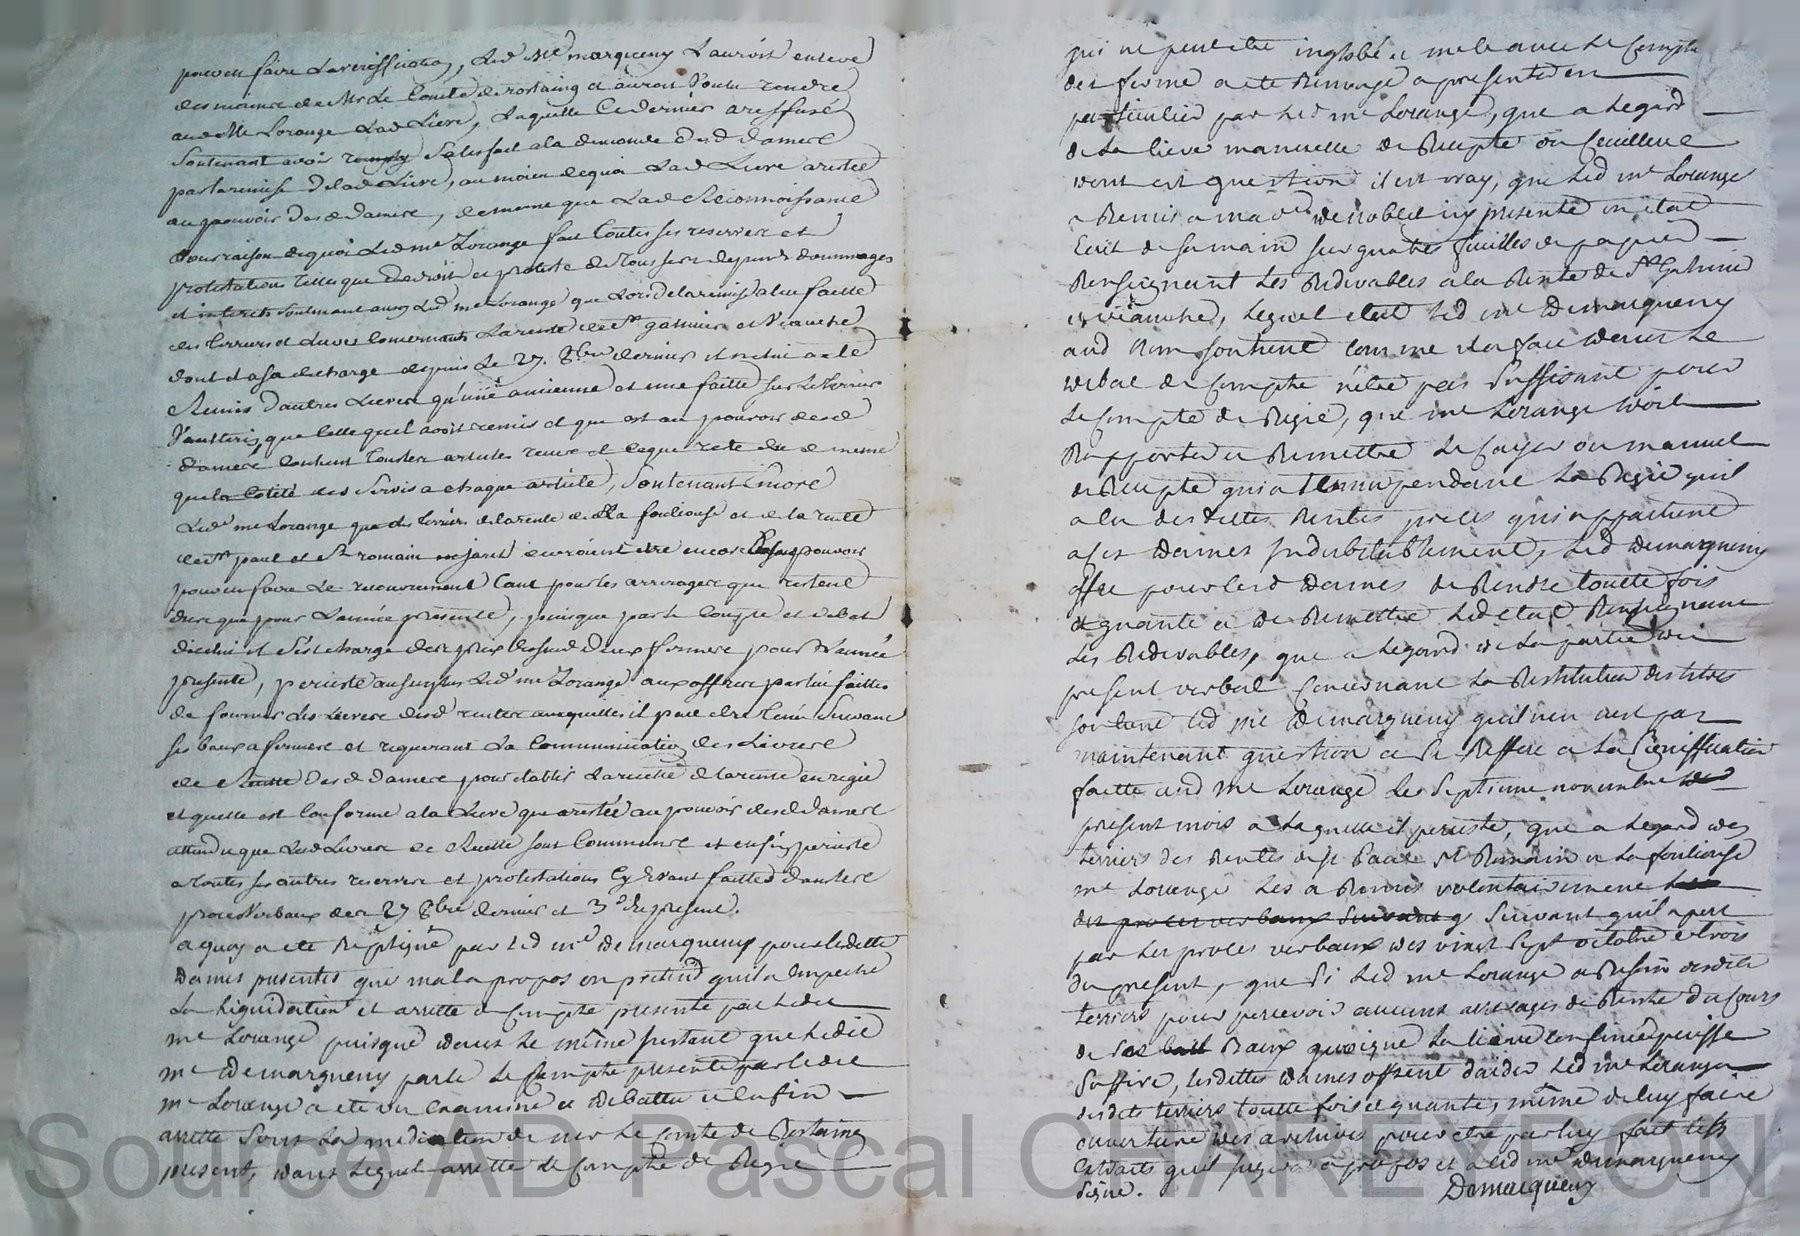 pouvoir faire la verification, Led. Me marqueny L'auroit enlevé
des mains de Mr Le Comte de rostaing et auroit voulu rendre
aud. Me Lorange Lad. Lieve, Laquelle Ce dernier a reffusé
Soutenant avoir satisfait a la demande desd. dames
par la remise de lad. Lieve, au moien de quoi Lad. Lieve a resté
au pouvoir desd. dames, de meme que Lad. Reconnoissance
Pour raison de quoi Led. me Lorange fait toutes ses reserves et
protestations telles que de droit et proteste de tous ses depens dommages
et interets soutenant aussy Led. me Lorange que Lors de la remise a lui faitte
des terriers et Lieves Concernants La rente de St galmier et Veauche
dont il a sa decharge depuis Le 27. 8bre dernier il ne lui a été
Remis d'autres Lieves qu'une ancienne et une faitte sur Le terrier
que Celle quil avoit remis et que est au pouvoir desd.
dames Contient tous les articles recus et ce que reste du de meme
que la Cotité des Servis a chaque article, Soutenant encore
Led. me Lorange que des terriers de la rente de la fouliouse et de la rente
de St paul et St romain en jarest devroient etre encore pouvoir
pouvoir faire Le recouvrement tant pour les arrerages que restent
dus que pour L'année presente, puisque par le Compte et debat
dicelui il s'est chargé des prix desd. deux fermes pour L'année
presente, persiste au surplus Led. me Lorange aux offres par lui faittes
de fournir Les Lieves desd. rentes auxquelles il peut etre tenu Suivant
ses baux a fermes et requerant La Communication des Livres
de Recette desd. dames pour etablir La recette de la rente en regie
et quelle est Conforme a la Lieve que a resté au pouvoir desd. dames
attendu que Lesd. Livres de Recette sont Communs et enfin persiste
a toutes ses autres reserves et protestations Cy devant faittes dans les
procès Verbaux des 27 8bre dernier et 3e du present.
a quoy a ete Repliqué par Led. me demarqueny pour lesdittes
Dames presentes que mal a propos on pretend quil a empeché
La liquidation et arretté du Compte presenté par ledit
me Lorange puisque dans le même instant que ledit
me Demarqueny parle Le Compte presenté par ledit
me Lorange a eté vu Examiné et debattu et Enfin
arretté Sous La mediation de mr Le Comte de Rostaing
present, dans Lequel arretté de Compte de Regie
qui ne peut etre inglobé et melé avec Le Compte
des ferme a eté Renvoyé a presenter en
particulier par Led. me Lorange, que a Legard
de La lieve manuelle de Recepte ou Cueilleret
dont est question il est vray, que Led. me Lorange
a Remis a mad. de noblet icy presente un etat
Ecrit de sa main sur quatre feuilles de papier
Renseignant Les Redevables a la Rente de St Galmier
et Veauche, Lequel etat Led. me Demarqueny
aud. nom soutient comme il a fait dans Le
debat de Compte n'etre pas Suffisant pour
Le Compte de Regie, que me Lorange doit
Rapporter et Remettre Le Cayer ou manuel
de Recepte qui a tenu pendant La Regie quil
a eu desdittes Rentes, pieces qui appartient
a ses dames indubitablement, Led. demarqueny
offre pour lesd. dames de Rendre toutte fois
et quante et de Remettre Led. etat Renseignant
Les Redevables, que a Legard de La partie du
present verbal Concernant La Restitution des titres
soutient Led. me Demarqueny quil nen est pas
maintenant question et se Reffere a La Signiffication
faitte aud. me Lorange Le Septieme novembre
present mois a Laquelle il persiste, que a Legard des
terriers des Rentes de St Paul St Romain et La fouliouse
me Lorange Les a Remis volontairement
des procès verbaux Suivant q Suivant quil apert
par Les procès verbaux des vingt Sept octobre et trois
du present, que Si Led. me Lorange a Besoin desdits
terriers pour percevoir aucuns arrerages de Rente du Cours
de Ses Baux quoique La lieve Confinée puisse
Suffire, lesdittes dames offrent d'aider Led. me Lorange
desdits terriers toutte fois et quante, même de luy faire
ouverture des archives pour etre par luy fait tels
Extraits quil jugera a propos et a led. me Demarqueny
Signé. Demarqueny
Source AD Pascal CHAREYRON